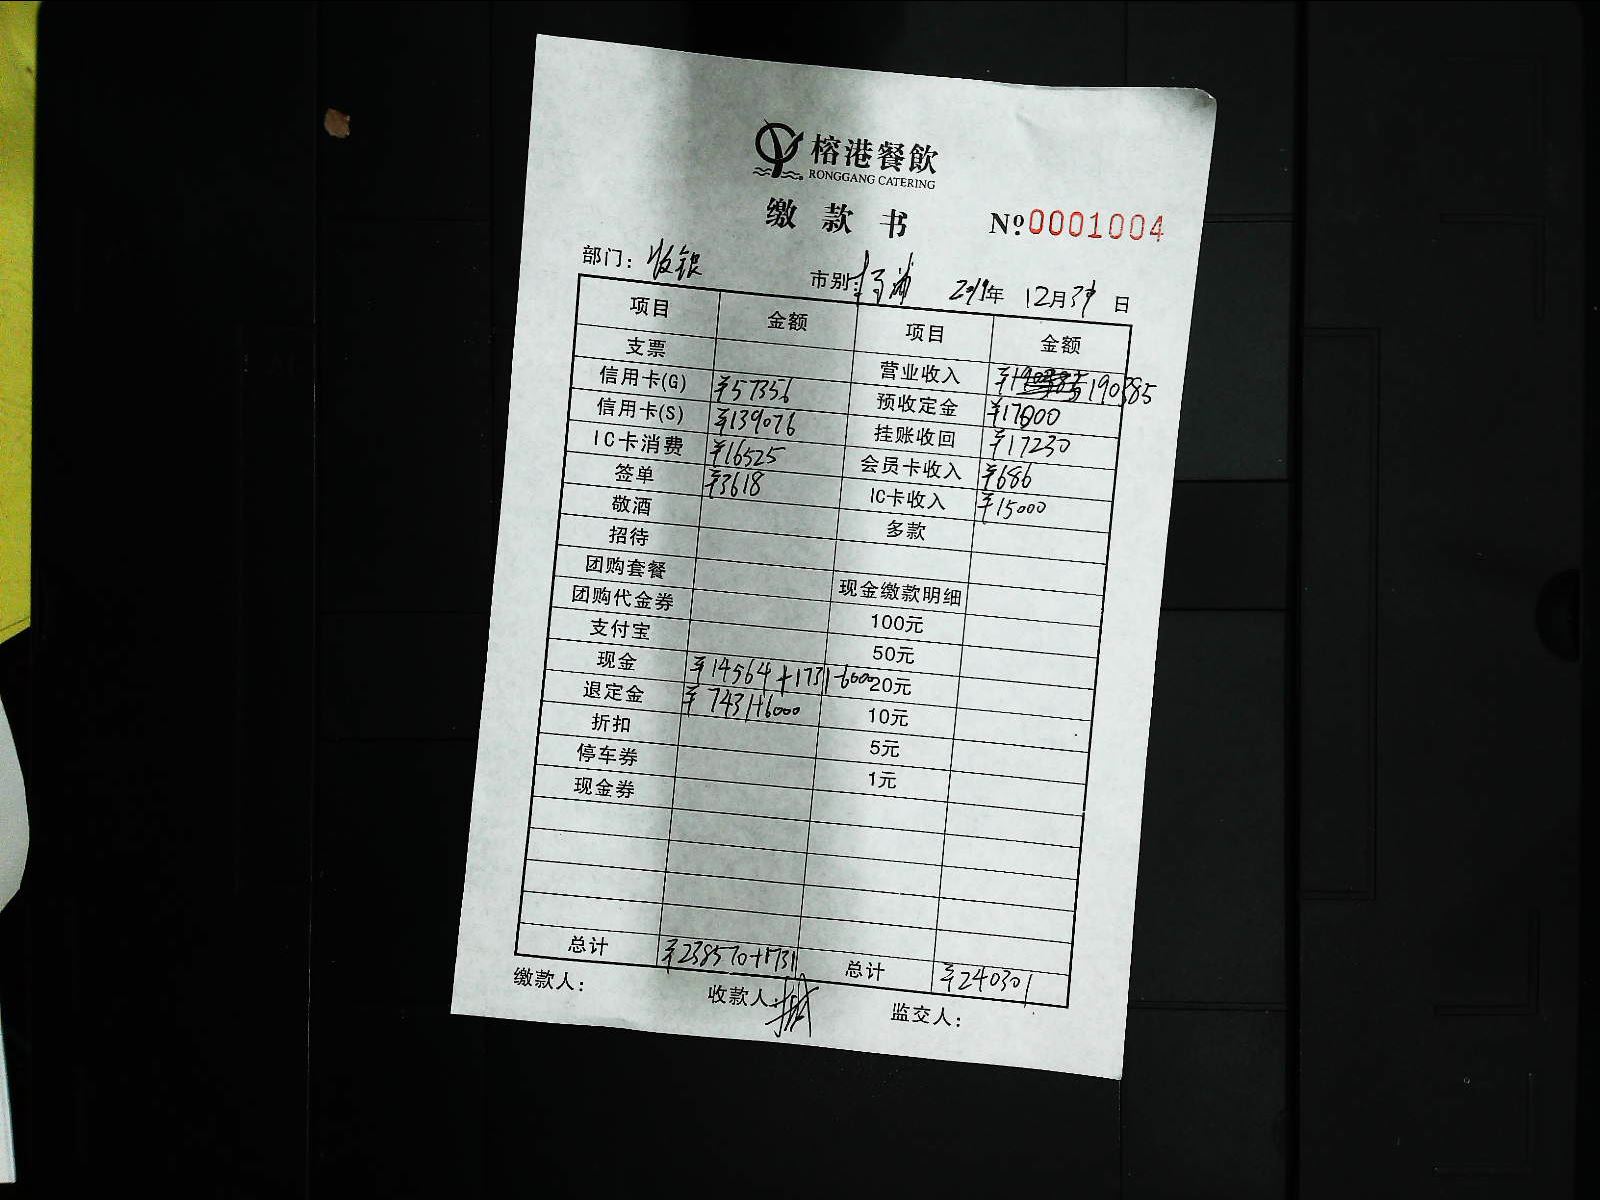 榕港餐飲
RONGGANG CATERING
缴款书 №0001004
部门：收银 市别： 2019年 12月31日
项目 金额 项目 金额
支票 营业收入 ¥190385
信用卡(G) ¥57356 预收定金 ¥17000
信用卡(S) ¥139076 挂账收回 ¥17230
IC卡消费 ¥16525 会员卡收入 ¥686
签单 ¥3618 IC卡收入 ¥15000
敬酒 多款
招待
团购套餐 现金缴款明细
团购代金券 100元
支付宝 50元
现金 ¥14564+1731-6000 20元
退定金 ¥7431+6000 10元
折扣 5元
停车券 1元
现金券
总计 ¥238570+1731 总计 ¥240301
缴款人： 收款人： 监交人：